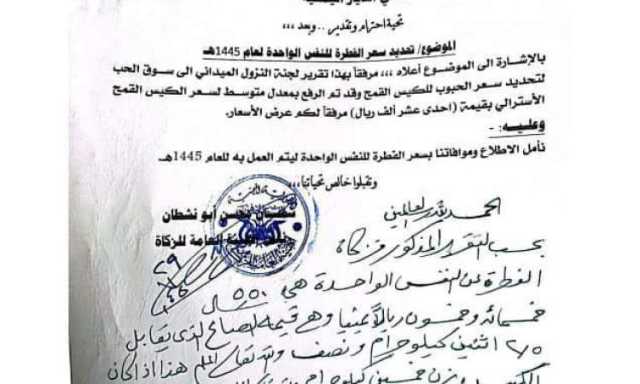 تحية احترام وتقدير .. وبعد ،،،
الموضوع/ تحديد سعر الفطرة للنفس الواحدة لعام 1445هـ
بالإشارة الى الموضوع أعلاه ،،، مرفقاً بهذا تقرير لجنة النزول الميداني الى سوق الحب
لتحديد سعر الحبوب للكيس القمح وقد تم الرفع بمعدل متوسط لسعر الكيس القمح
الأسترالي بقيمة (احدى عشر ألف ريال) مرفقاً لكم عرض الأسعار.
وعليه: -
نأمل الاطلاع وموافاتنا بسعر الفطرة للنفس الواحدة ليتم العمل به للعام 1445هـ
وتقبلوا خالص تحياتنا،،،
محسن أبو نشطان
الهيئة العامة للزكاة
الحمد لله رب العالمين
بحسب التقرير المذكور زكاة
الفطرة عن النفس الواحدة هي ٥٥٠ ريال
خمسمائة وخمسون ريالاً يمنياً وهي قيمة الصاع الذي يقابل
٢٫٥ اثنين كيلو جرام ونصف والله تعالى أعلم هذا إذا كان
وزن خمسين كيلو جرام